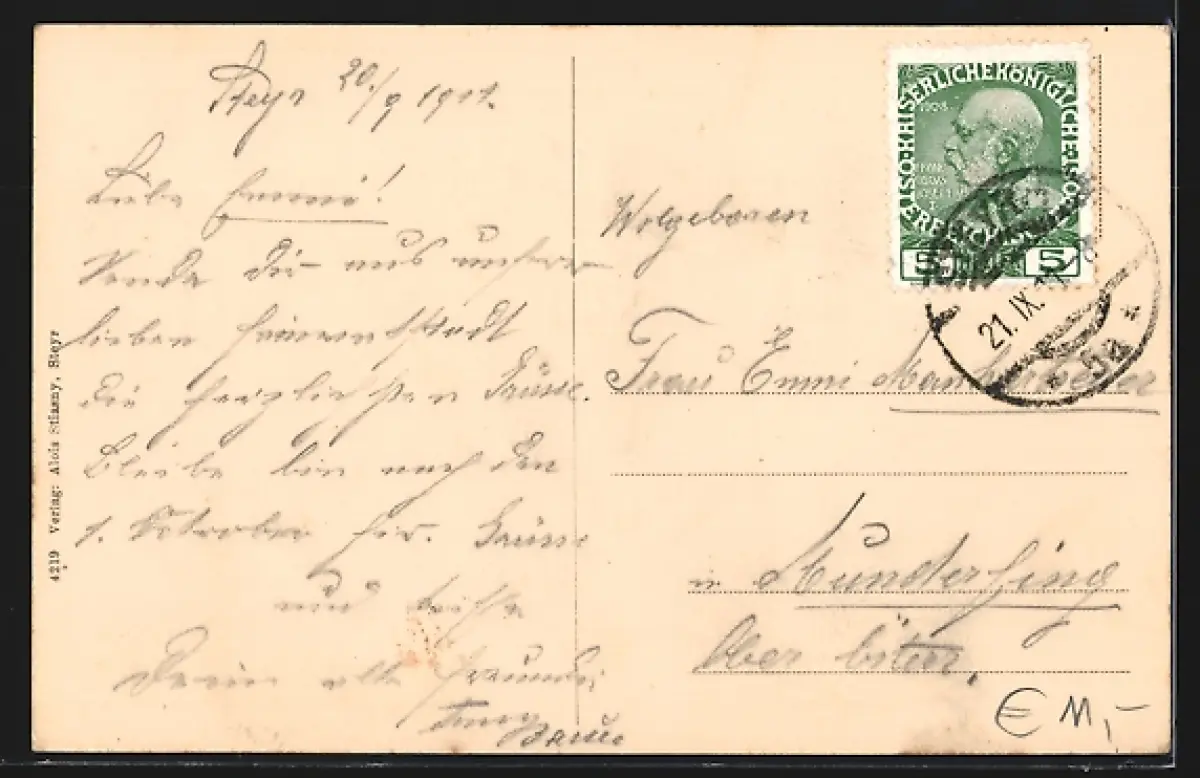 Steyr 20./9 1911.
Liebe Emmi!
Sende dir aus unserer
lieben Heimatstadt
die herzlichsten Grüsse.
Bleibe bis nach den
1. Oktober hir. Grüsse
und Küsse
Deine alte Freundin
4219 Verlag: Alois Stiasny, Steyr
Wolgeboren
Frau Emmi
in Munderfing
Ober
KAISERLICHE KÖNIGLICHE ÖSTERREICHISCHE POST
1908
5 5
21. IX. 11
* 5a *
€ M,-